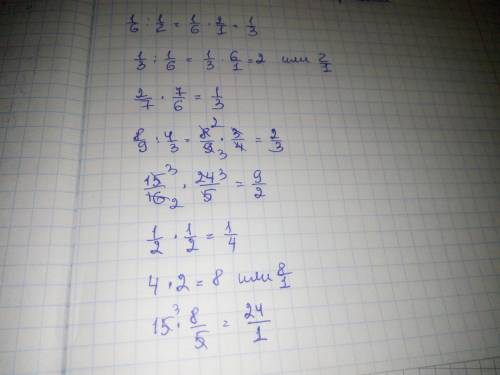 1/6 : 1/2 = 1/6 · 2/1 = 1/3
1/3 : 1/6 = 1/3 · 6/1 = 2 или 2/1
2/7 · 7/6 = 1/3
8/9 : 4/3 = 8²/9₃ · 3/4 = 2/3
15³/16₂ · 24³/5 = 9/2
1/2 · 1/2 = 1/4
4 · 2 = 8 или 8/1
15³ · 8/5 = 24/1